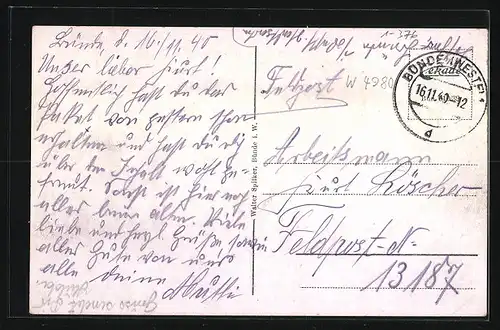 Bünde, d. 16./11. 40
Unser lieber Kurt!
Hoffentlich hast du das
Paket von gestern schon
erhalten und hast du dich
über den Inhalt wohl ge-
freut. Sonst ist hier noch
alles beim alten. Viele
liebe und herzl. Grüße sowie
alles Gute von uns
alle deine Mutti
Walter Spilker, Bünde i. W.
1-376
W 4980
Feldpost
BÜNDE (WESTF)
16.11.40.-12
d
Arbeitsmann
Kurt Löscher
Feldpost-N-
13187